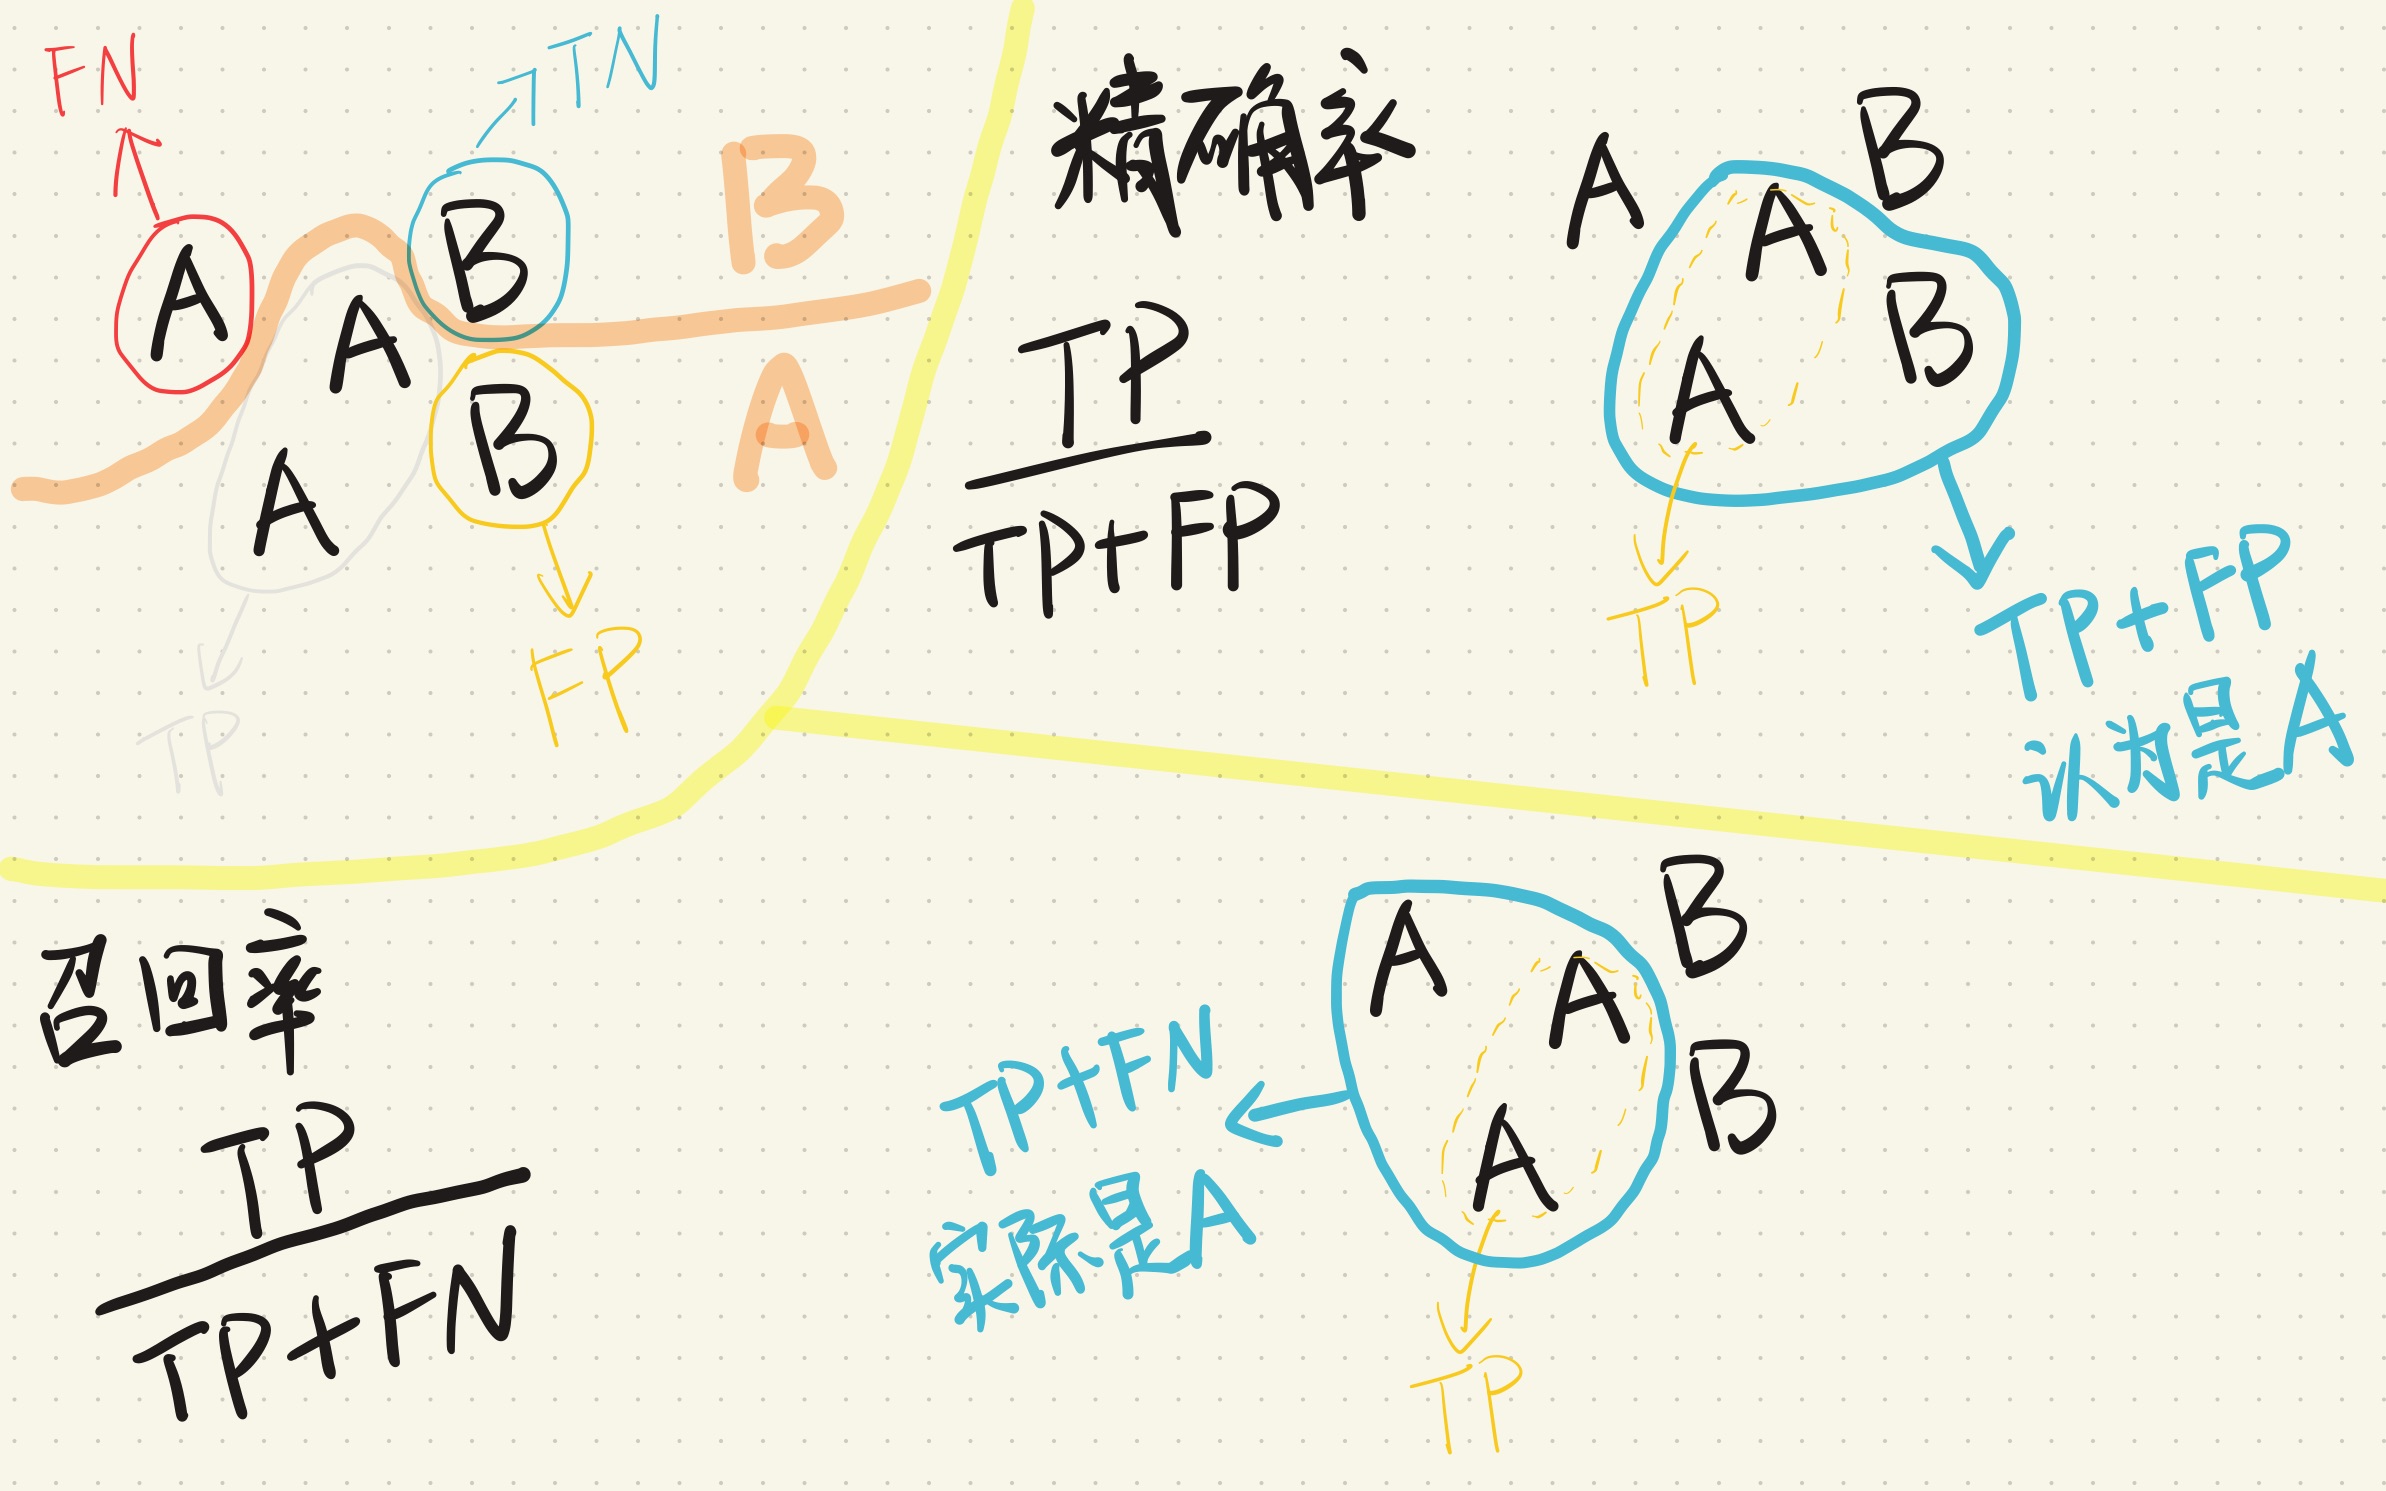 FN
TN
B
A
B
A
A
B
A
FP
TP
精确率
TP
TP+FP
A
B
A
B
A
TP
TP+FP
认为是A
召回率
TP
TP+FN
A
B
A
B
A
TP+FN
实际是A
TP